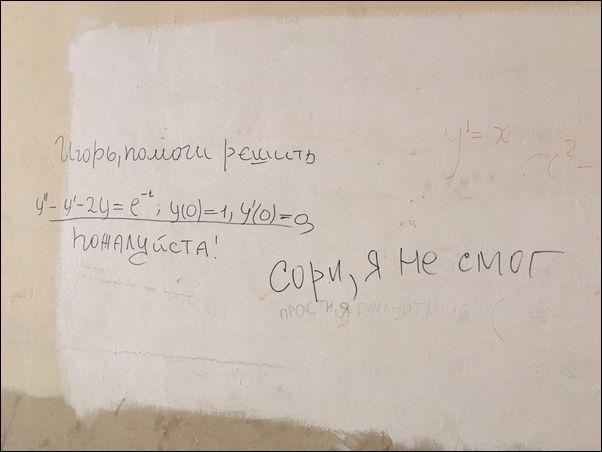 Игорь, помоги решить
y'' - y' - 2y = e^-t; y(0)=1, y'(0)=0,
пожалуйста!
y' = x
x² -
Сори, я не смог
ПРОСТИ, Я ГУМАНИТАРИЙ (